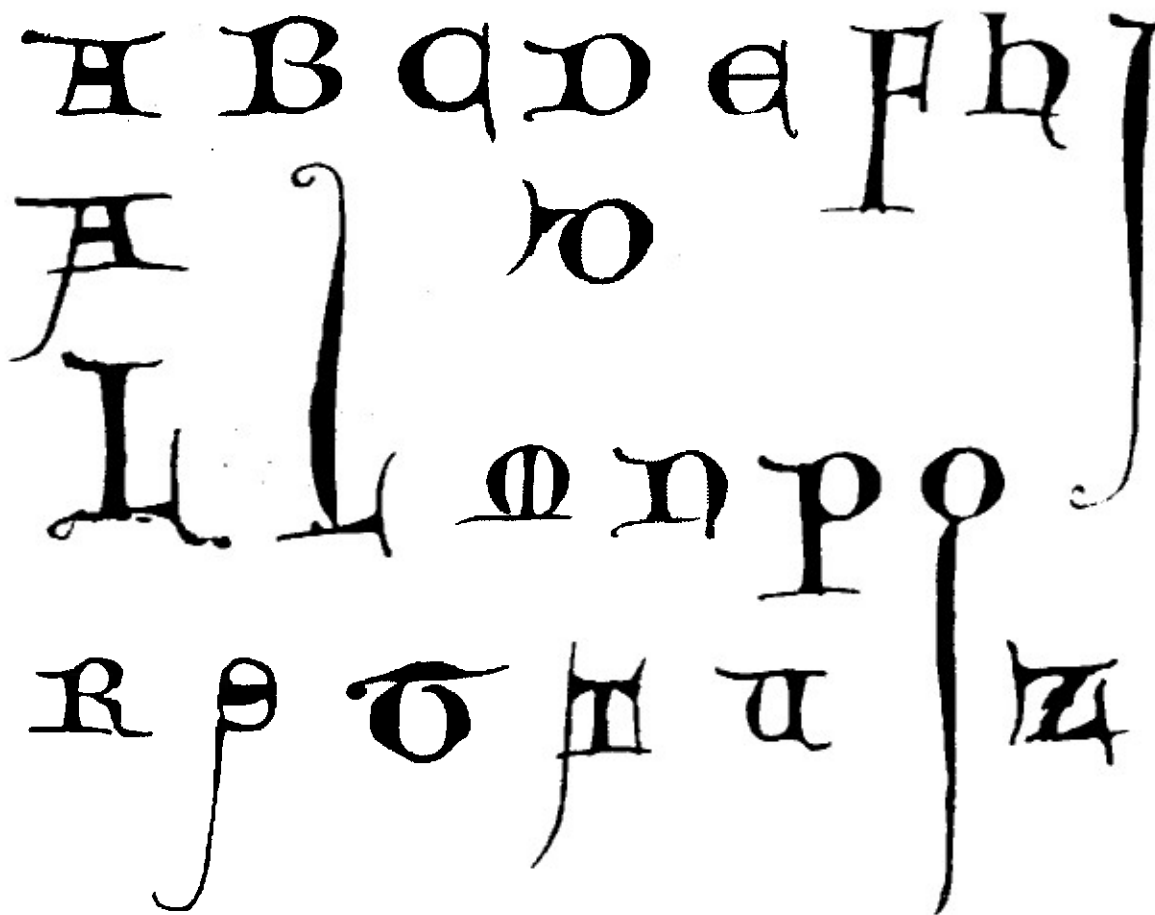 A B C D E F H I
A D
L L M N P Q
R S T T U Z